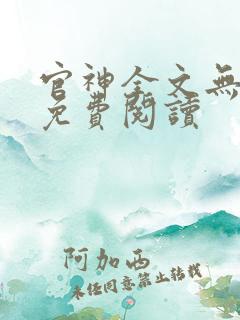 官神全文無
免費閱讀
阿加西
未经同意禁止转载